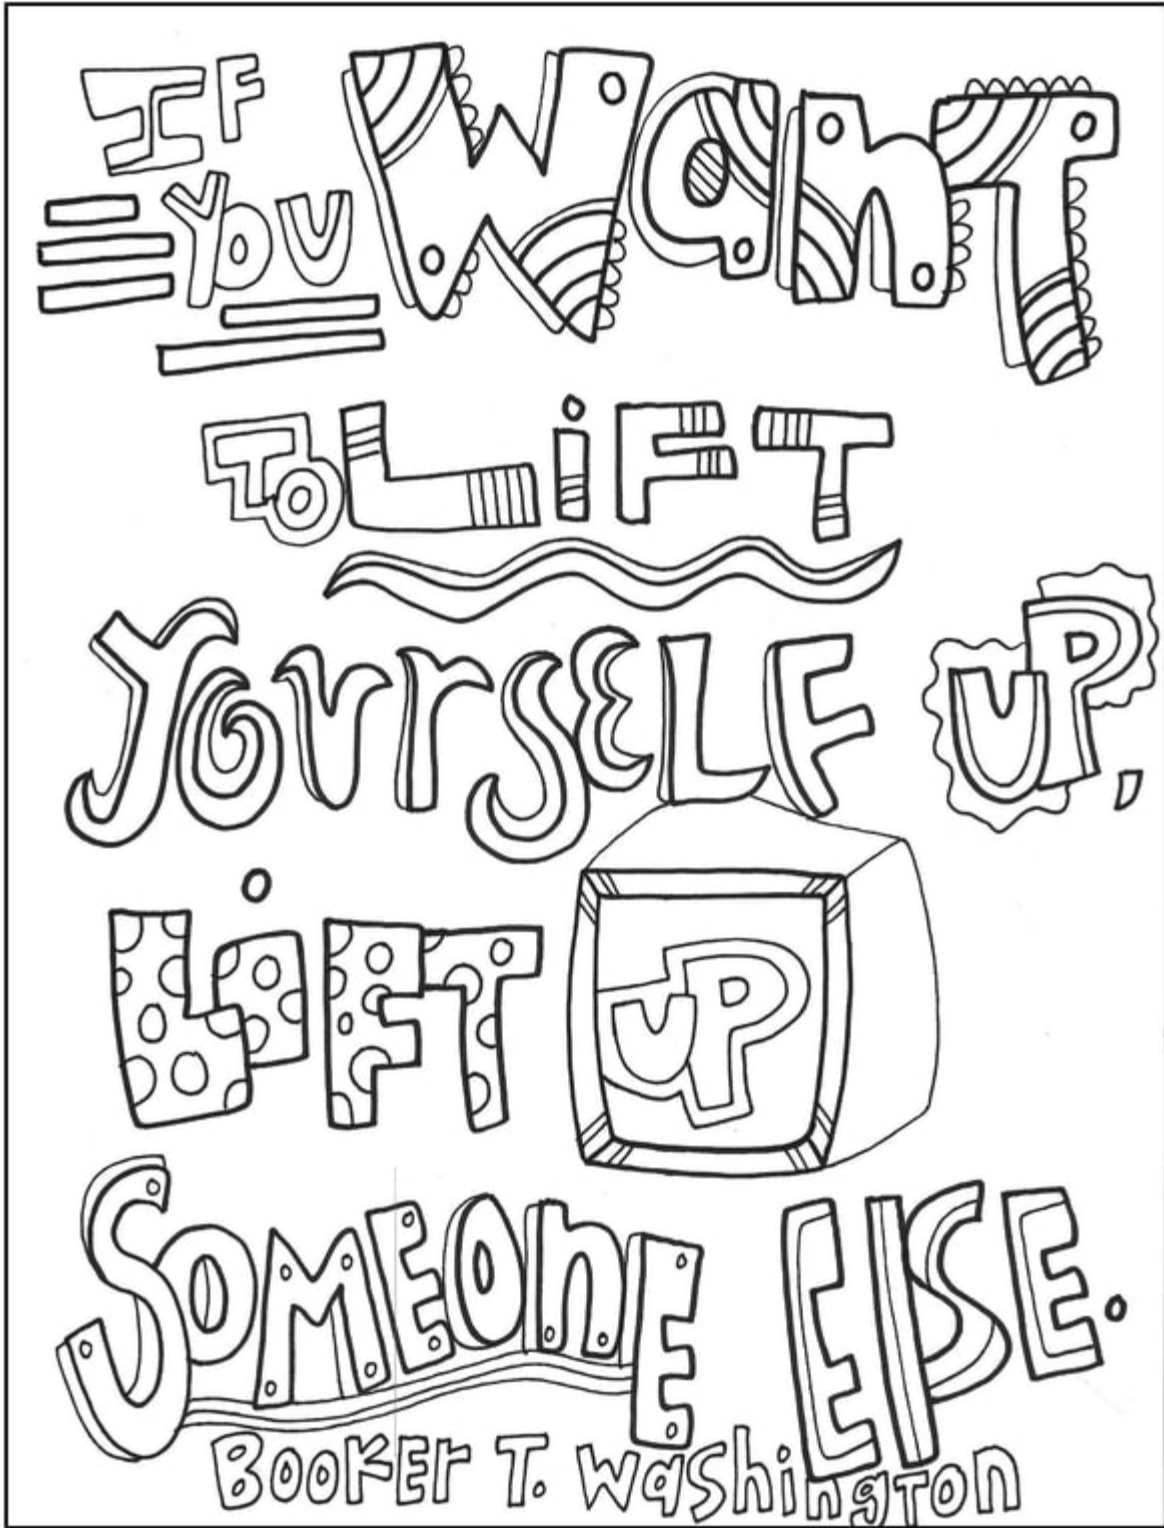 IF
YOU WanT
TO LiFT
YOurSELF UP,
LiFT UP
SOMEOnE ElSE.
BOOKEr T. WashingTon